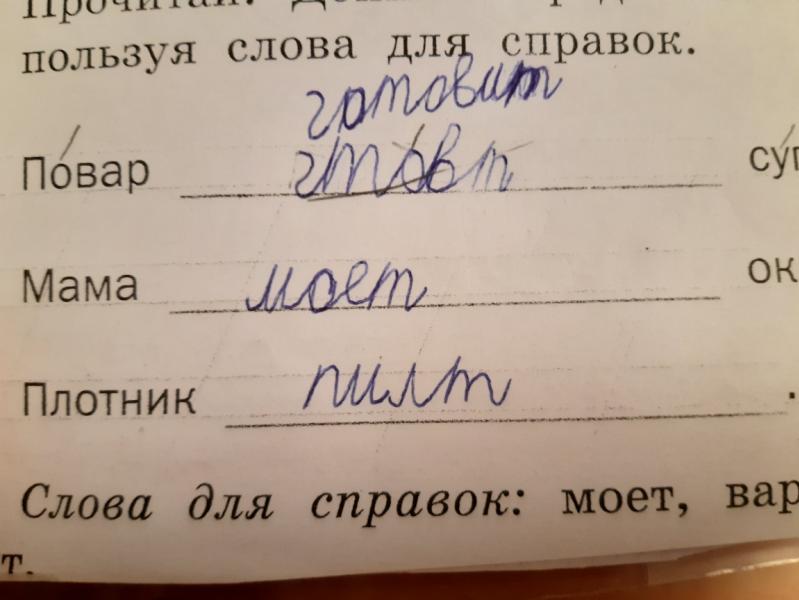 Прочитай.
пользуя слова для справок.
готовит
Повар гтовт суп
Мама моет ок
Плотник пилт .
Слова для справок: моет, вар
т.